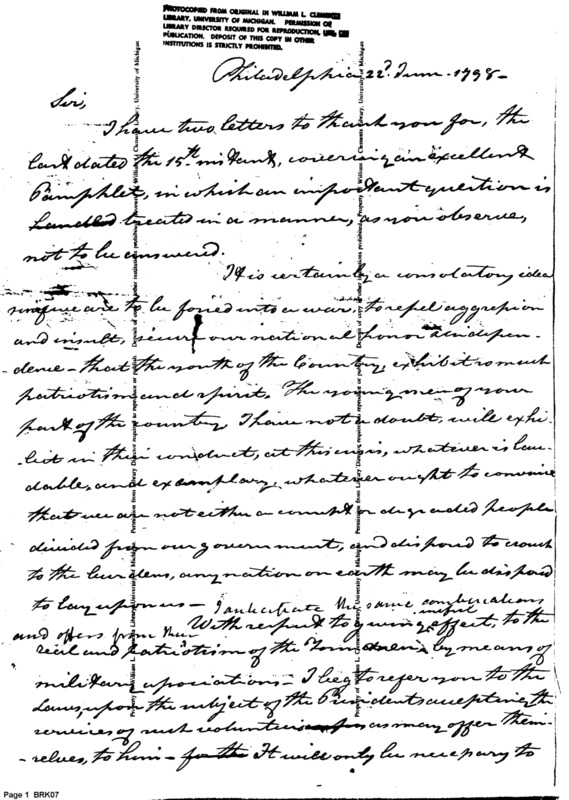 PHOTOCOPIED FROM ORIGINAL IN WILLIAM L. CLEMENTS
LIBRARY, UNIVERSITY OF MICHIGAN. PERMISSION OF
LIBRARY DIRECTOR REQUIRED FOR REPRODUCTION, OR
PUBLICATION. DEPOSIT OF THIS COPY IN OTHER
INSTITUTIONS IS STRICTLY PROHIBITED.
Philadelphia 22d June 1798-
Sir,
I have two letters to thank you for, the
last dated the 15th instant, covering an excellent
Pamphlet, in which an important question is
handled treated in a manner, as you observe,
not to be answered.
It is certainly a consolatory idea
since we are to be forced into a war, to repel aggression
and insult, secure our national honor & indepen-
dence - that the youth of the Country, exhibit so much
patriotism and spirit. The young men of your
part of the country I have not a doubt, will exhi-
bit in their conduct, at this crisis, whatever is lau-
dable, and exemplary, whatever ought to convince
that we are not either a corrupt or degraded people
divided from our government, and disposed to crouch
to the burdens, any nation on earth may be disposed
to lay upon us - I anticipate the same combinations
and offers from them
With respect to giving useful effect, to the
zeal and patriotism of the Young men by means of
military associations - I beg to refer you to the
Laws, upon the subject of the Presidents accepting the
services of such volunteers as may offer them-
-selves, to him - for the It will only be necessary to
Page 1 BRK07